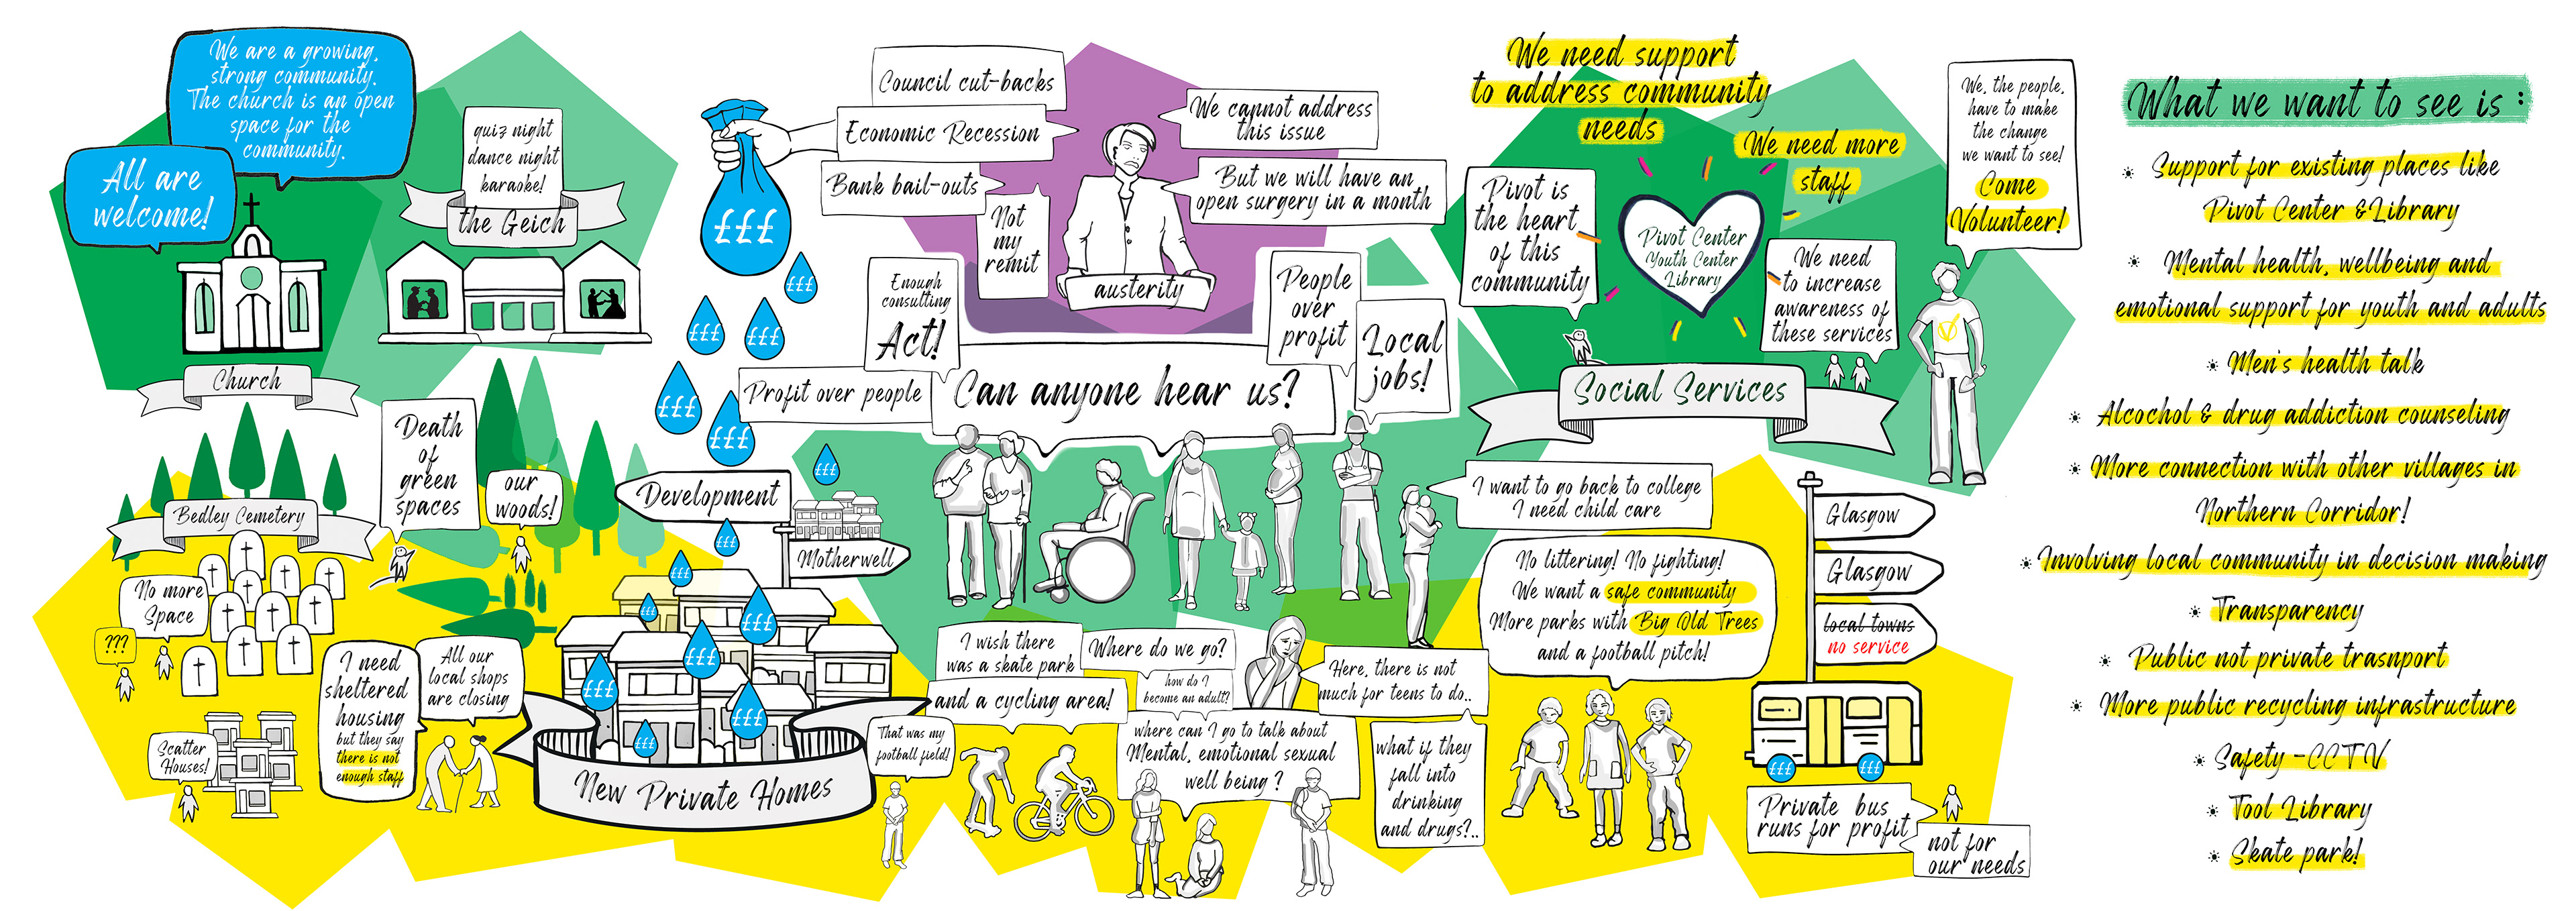 We are a growing,
strong community.
The church is an open
space for the
community.
All are
welcome!
Church
quiz night
dance night
karaoke!
the Geich
£££
£££
£££
£££
£££
£££
Council cut-backs
Economic Recession
Bank bail-outs
Not
my
remit
We cannot address
this issue
But we will have an
open surgery in a month
austerity
Enough
consulting
Act!
Profit over people
Can anyone hear us?
People
over
profit
Local
jobs!
We need support
to address community
needs
We need more
staff
Pivot is
the heart
of this
community
Pivot Center
Youth Center
Library
We need
to increase
awareness of
these services
Social Services
We, the people,
have to make
the change
we want to see!
Come
Volunteer!
Bedley Cemetery
No more
Space
???
Death
of
green
spaces
our
woods!
Scatter
Houses!
I need
sheltered
housing
but they say
there is not
enough staff
All our
local shops
are closing
Development
Motherwell
£££
£££
£££
£££
£££
£££
£££
£££
£££
£££
New Private Homes
That was my
football field!
I wish there
was a skate park
and a cycling area!
Where do we go?
how do I
become an adult?
where can I go to talk about
Mental, emotional sexual
well being?
Here, there is not
much for teens to do..
what if they
fall into
drinking
and drugs?..
I want to go back to college
I need child care
No littering! No fighting!
We want a safe community
More parks with Big Old Trees
and a football pitch!
Glasgow
Glasgow
local towns
no service
£££
£££
Private bus
runs for profit
not for
our needs
What we want to see is :
Support for existing places like
Pivot Center & Library
Mental health, wellbeing and
emotional support for youth and adults
Men's health talk
Alcochol & drug addiction counseling
More connection with other villages in
Northern Corridor!
Involving local community in decision making
Transparency
Public not private trasnport
More public recycling infrastructure
Safety -CCTV
Tool Library
Skate park!